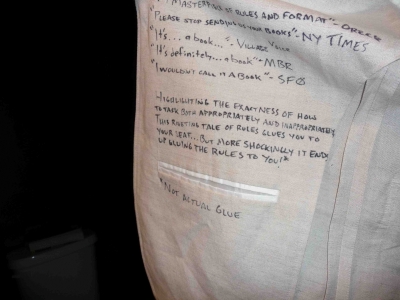 MASTERPIECE OF RULES AND FORMAT" -
"PLEASE STOP SENDING US YOUR BOOKS" - NY TIMES
"IT'S... A BOOK..." - VILLAGE VOICE
"IT'S DEFINITELY... A BOOK" - MBR
"I WOULDN'T CALL IT A BOOK" - SFO
HIGHLIGHTING THE EXACTNESS OF HOW
TO TASK BOTH APPROPRIATELY AND INAPPROPRIATELY
THIS RIVETING TALE OF RULES GLUES YOU TO
YOUR SEAT... BUT MORE SHOCKINGLY IT ENDS
UP GLUING THE RULES TO YOU!*
*NOT ACTUAL GLUE